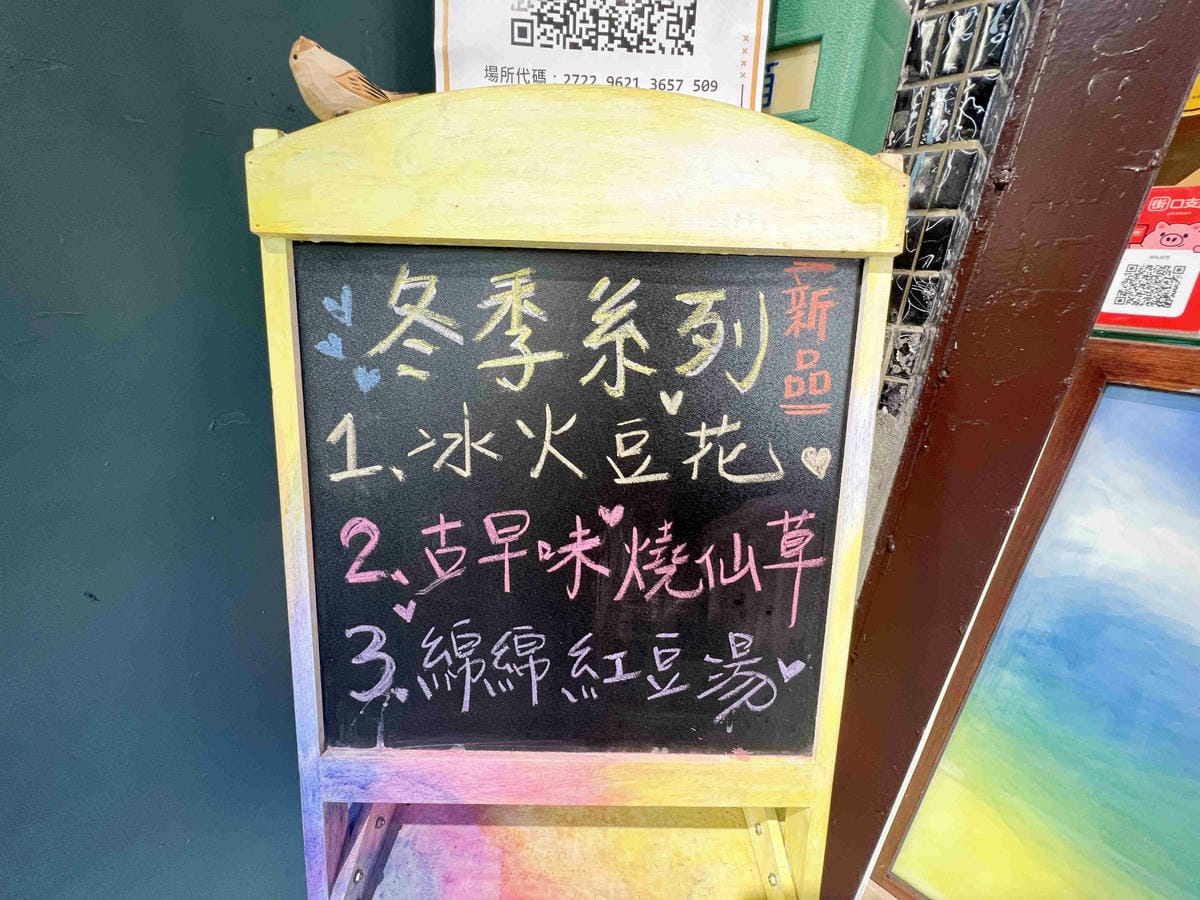 場所代碼：2722 9621 3657 509
冬季系列
新品
1、冰火豆花
2、古早味燒仙草
3、綿綿紅豆湯
街口支